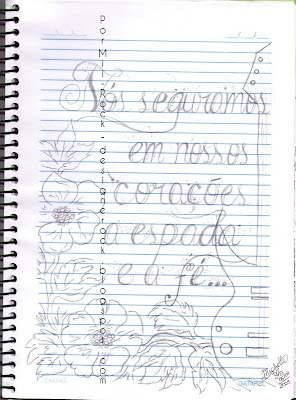 Nós seguramos
em nossos
corações
a espada
e a fé...
por Mii-Rock-designerock.blogspot.com